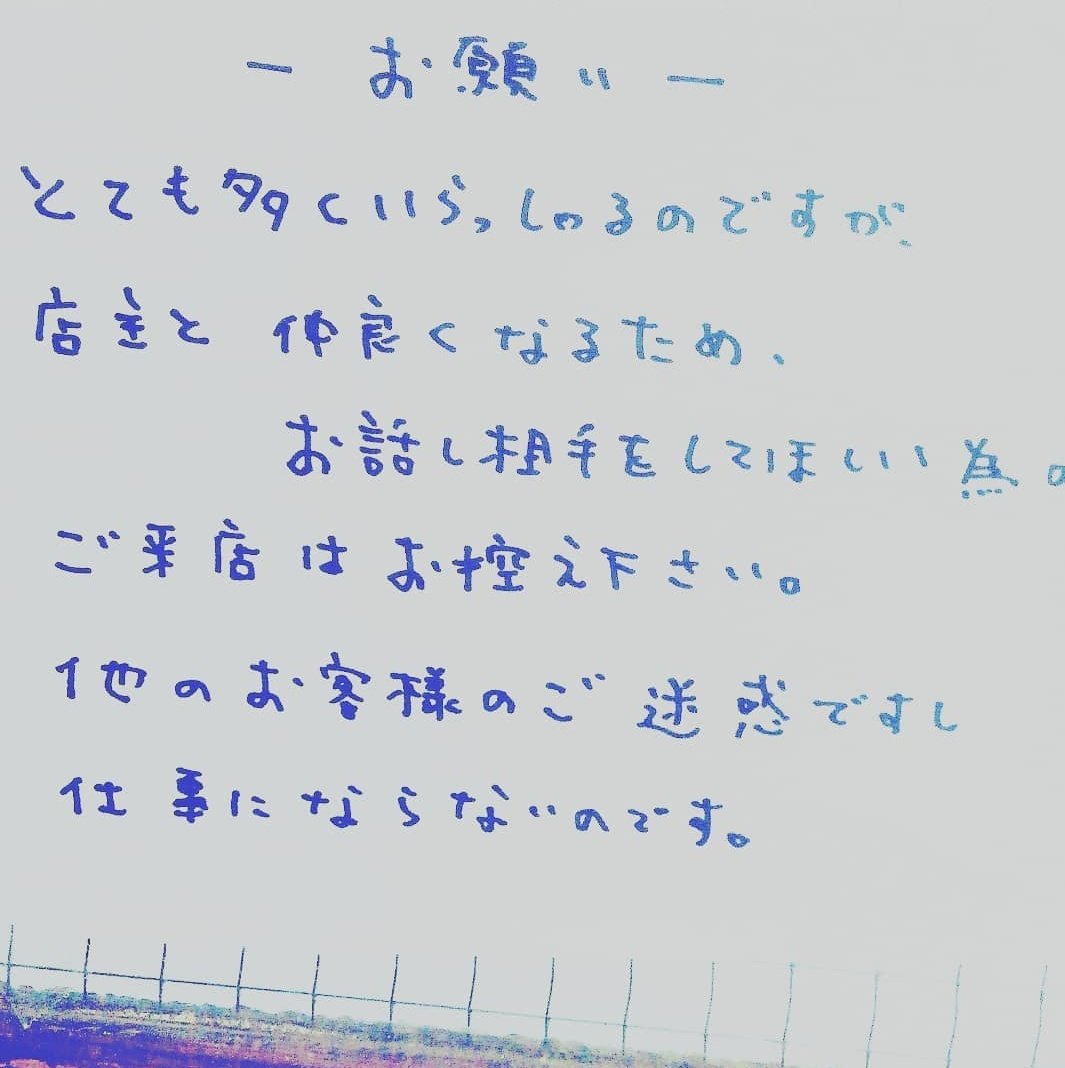 ー お願い ー
とても多くいらっしゃるのですが、
店主と 仲良くなるため、
お話し相手をしてほしい為の
ご来店はお控え下さい。
他のお客様のご迷惑ですし
仕事にならないのです。